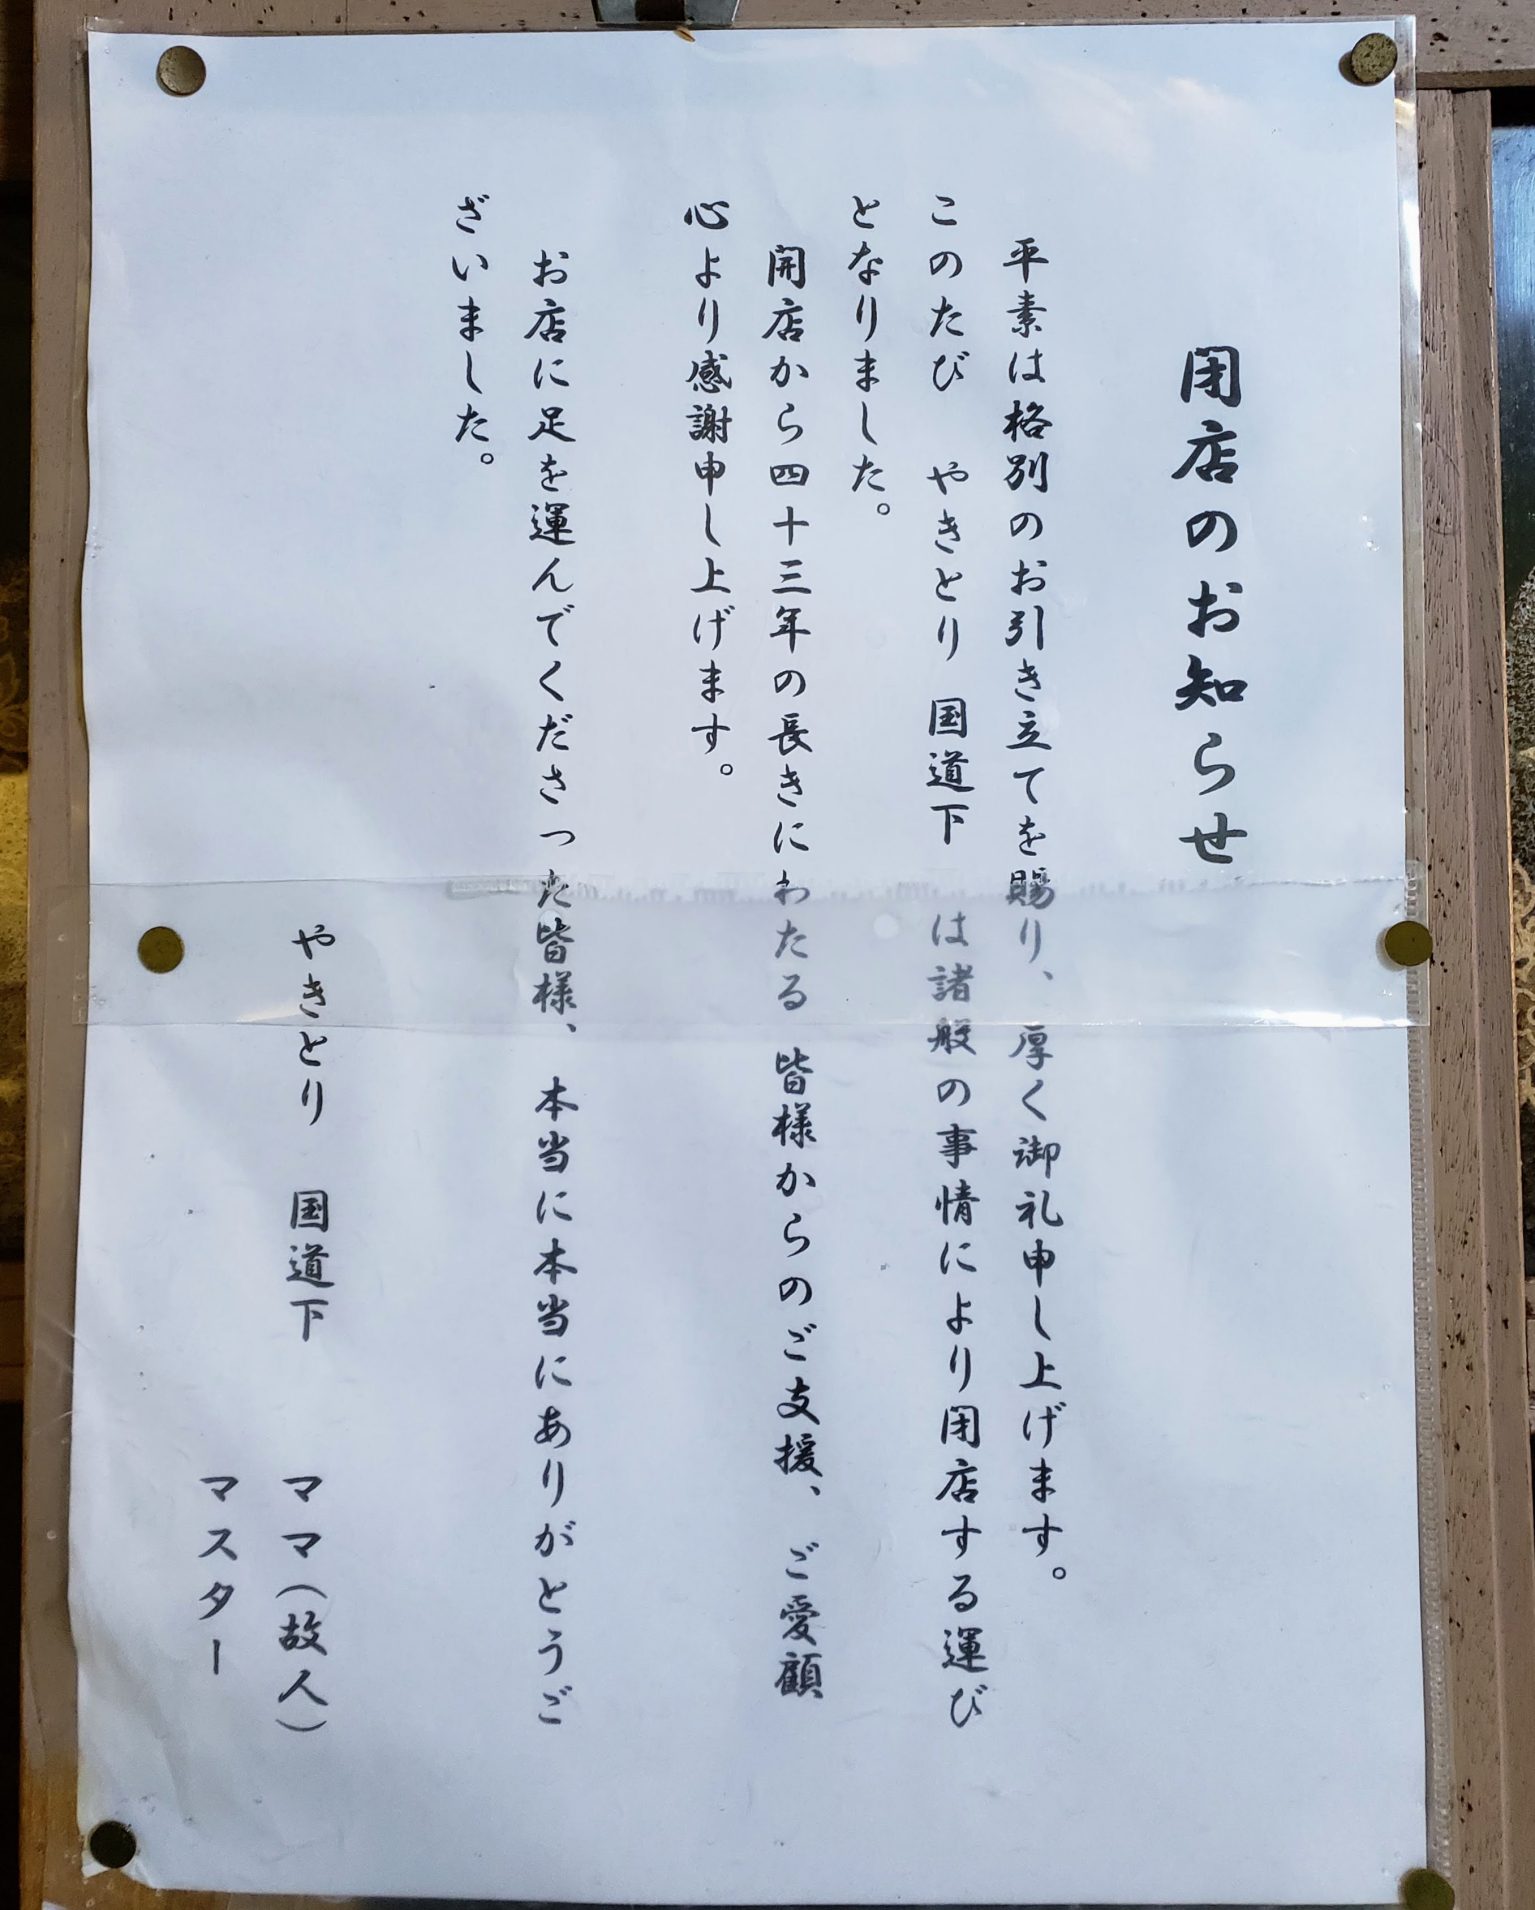 閉店のお知らせ
平素は格別のお引き立てを賜り、厚く御礼申し上げます。
このたび　やきとり　国道下　は諸般の事情により閉店する運び
となりました。
開店から四十三年の長きにわたる　皆様からのご支援、ご愛顧
心より感謝申し上げます。
お店に足を運んでくださった皆様、本当に本当にありがとうご
ざいました。
やきとり　国道下　ママ（故人）
マスター